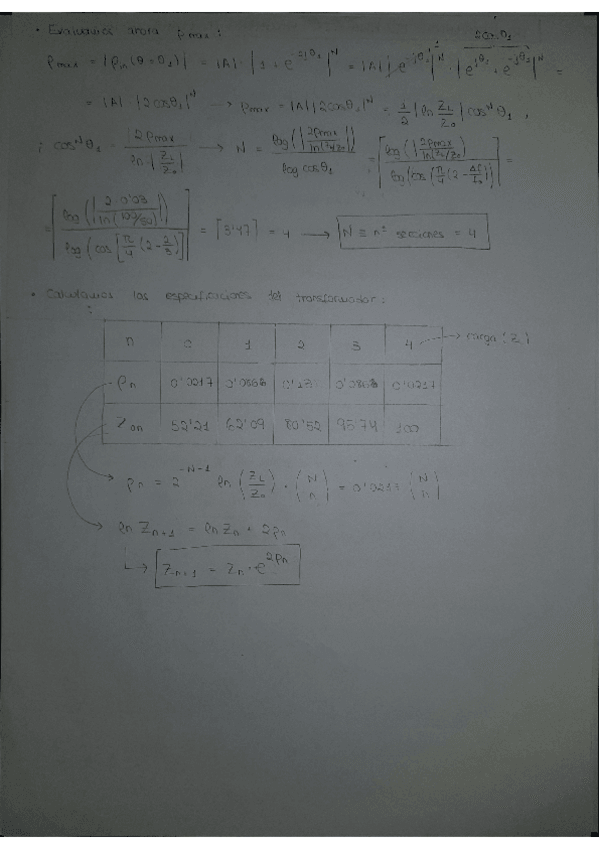 • Evaluamos ahora ρmax:
ρmax = |ρin(θ=θ1)| = |A| · |1 + e^-2jθ1|^N = |A| |e^-jθ1|^N · |e^jθ1 + e^-jθ1|^N =
2cosθ1
= |A| · |2cosθ1|^N → ρmax = |A| |2cosθ1|^N = 1/2 |ln ZL/Z0| cos^N θ1,
; cos^N θ1 = |2ρmax / ln|ZL/Z0|| → N = log(|2ρmax / ln(ZL/Z0)|) / log cosθ1 = ⌈log(|2ρmax / ln(ZL/Z0)|) / log(cos(π/4 (2 - Δf/f0)))⌉ =
= ⌈log(|2·0'03 / ln(100/50)|) / log(cos[π/4 (2 - 2/3)])⌉ = ⌈3'47⌉ = 4 → N ≡ nº secciones = 4
• Calculamos las especificaciones del transformador:
n 0 1 2 3 4 → carga (ZL)
ρn 0'0217 0'0868 0'13 0'0868 0'0217
Zon 52'21 62'09 80'52 95'74 100
ρn = 2^-N-1 ln(ZL/Z0) · (N n) = 0'0217 (N n)
ln Zn+1 = ln Zn + 2ρn
↳ Zn+1 = Zn · e^2ρn